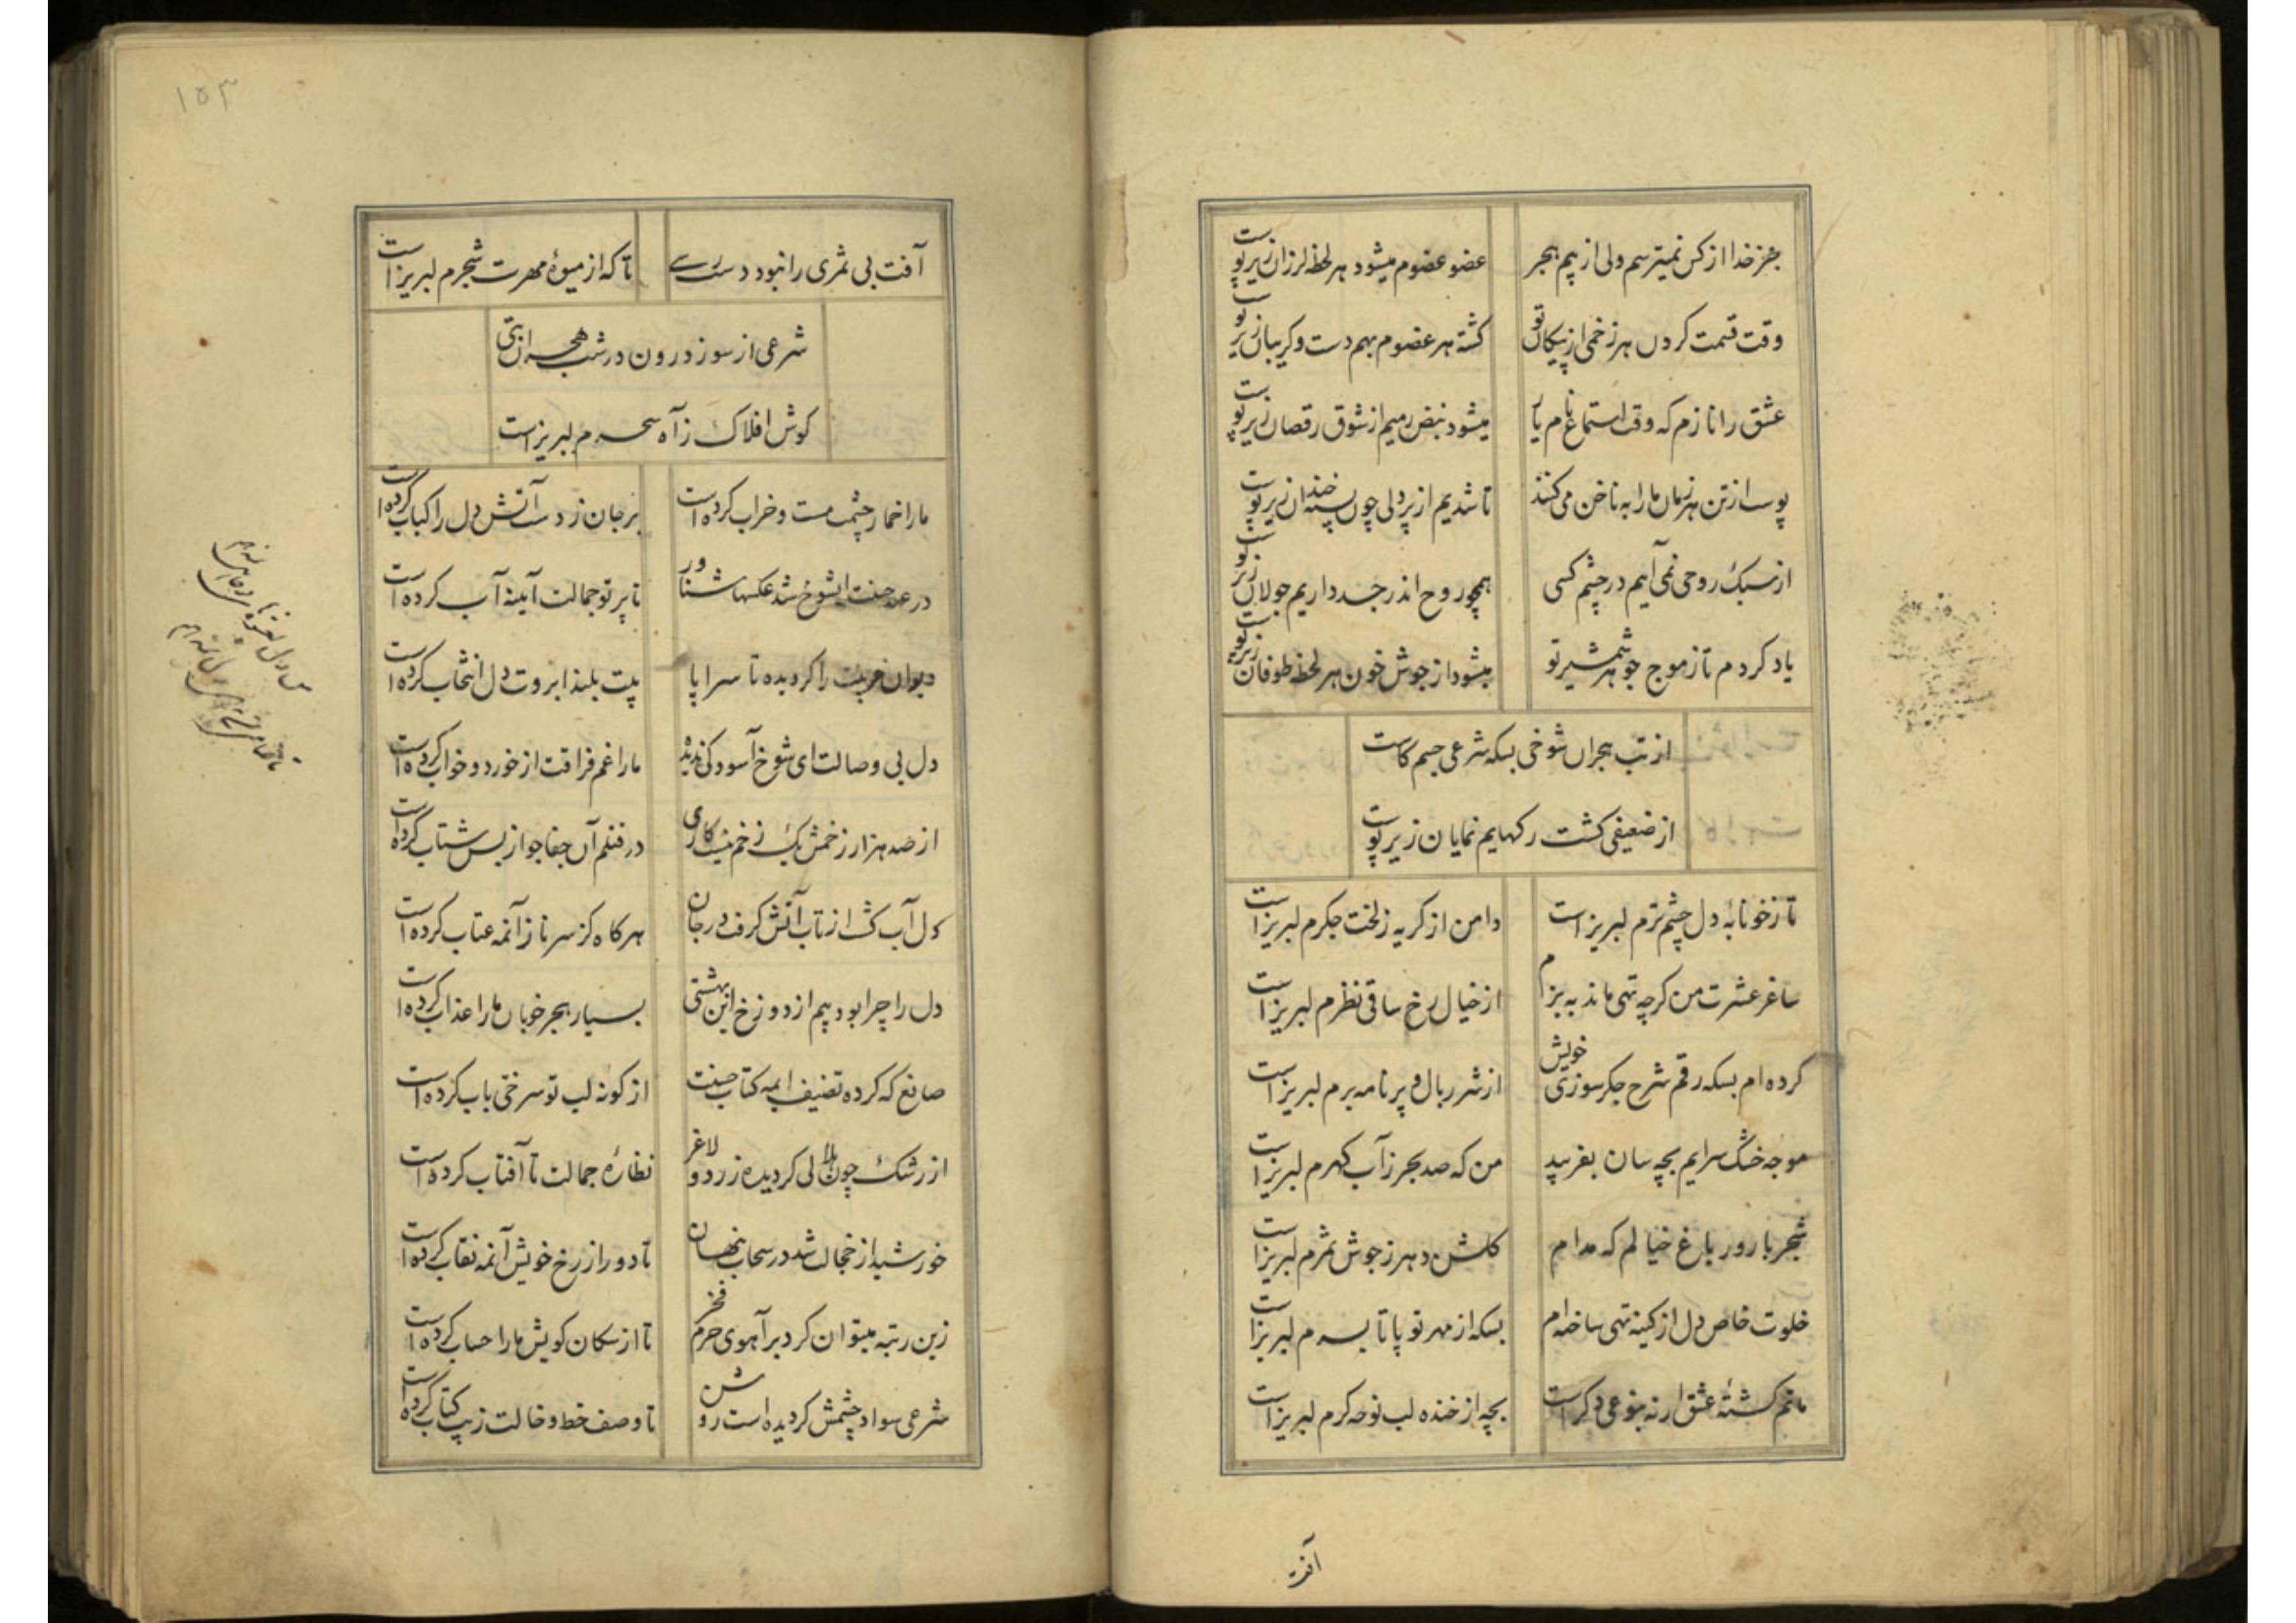 بجز خدا از کس نمیترسم ولی از بیم هجر
عضو عضوم میشود هر لحظه لرزان زیر پوست
وقت قسمت کردن هر زخمی از پیکان تو
کشته هر عضوم بهم دست و کریبان زیر پوست
عشق را نازم که وقت استماع نام یار
میشود نبض رمیم از شوق رقصان زیر پوست
پوست از تن هر زمان ما را به ناخن می کنند
تا شدیم از پردلی چون پسته خندان زیر پوست
از سبک روحی نمی آییم در چشم کسی
همچو روح اندر جسد داریم جولان زیر پوست
یاد کردم تا ز موج جوهر شمشیر تو
میشود از جوش خون هر لحظه طوفان زیر پوست
از تب هجران شوخی بسکه شرعی جسم کاست
از ضعیفی کشت رکهایم نمایان زیر پوست
تا ز خونابه دل چشم ترم لبریز است
دامن از کریه ز لخت جکرم لبریز است
ساغر عشرت من کرچه تهی ماند به بزم
از خیال رخ ساقی نظرم لبریز است
کرده ام بسکه رقم شرح جکرسوزی خویش
از شرر بال و پر نامه برم لبریز است
موجه خشک سرابم بچه سان بفریبد
من که صد بحر ز آب کهرم لبریز است
شجر بارور باغ خیالم که مدام
کلشن دهر ز جوش ثمرم لبریز است
خلوت خاص دل از کینه تهی ساخته ام
بسکه از مهر تو پا تا بسرم لبریز است
ماتم کشتۀ عشق ار نه بنوعی دکر است
بچه از خنده لب نوحه کرم لبریز است
آفت
۱۵۳
آفت بی ثمری را نبود دست رسی
تا که از میوۀ مهرت شجرم لبریز است
شرعی از سوز درون در شب هجران بتی
کوش افلاک ز آه سحرم لبریز است
ما را خمار چشمت مست و خراب کرده است
بر جان زدست آتش دل را کباب کرده است
در عهد حسنت ایشوخ شد عکسها شناور
تا پرتو جمالت آیینه آب کرده است
دیوان خوبیت را کردیده تا سراپا
بیت بلند ابروت دل انتخاب کرده است
دل بی وصالت ای شوخ آسودکی ندیده
ما را غم فراقت از خورد و خواب کرده است
از صد هزار زخمش یک زخم نیست کاری
در قتلم آن جفاجو از بس شتاب کرده است
دل آب کشت از تاب آتش کرفت در جان
هر کاه کز سر ناز آنمه عتاب کرده است
دل را چرا بود بیم از دوزخ این بهشتی
بسیار هجر خوبان ما را عذاب کرده است
صانع که کرده تصنیف ایمه کتاب حسنت
از کونه لب تو سرخی باب کرده است
از رشک چون هلالی کردیده زرد و لاغر
نظارۀ جمالت تا آفتاب کرده است
خورشید از خجالت شد در سحاب پنهان
تا دور از رخ خویش آنمه نقاب کرده است
زین رتبه میتوان کرد بر آهوی حرم فخر
تا از سکان کویش ما را حساب کرده است
شرعی سواد چشمش کردیده است روشن
تا وصف خط و خالت زیب کتاب کرده است